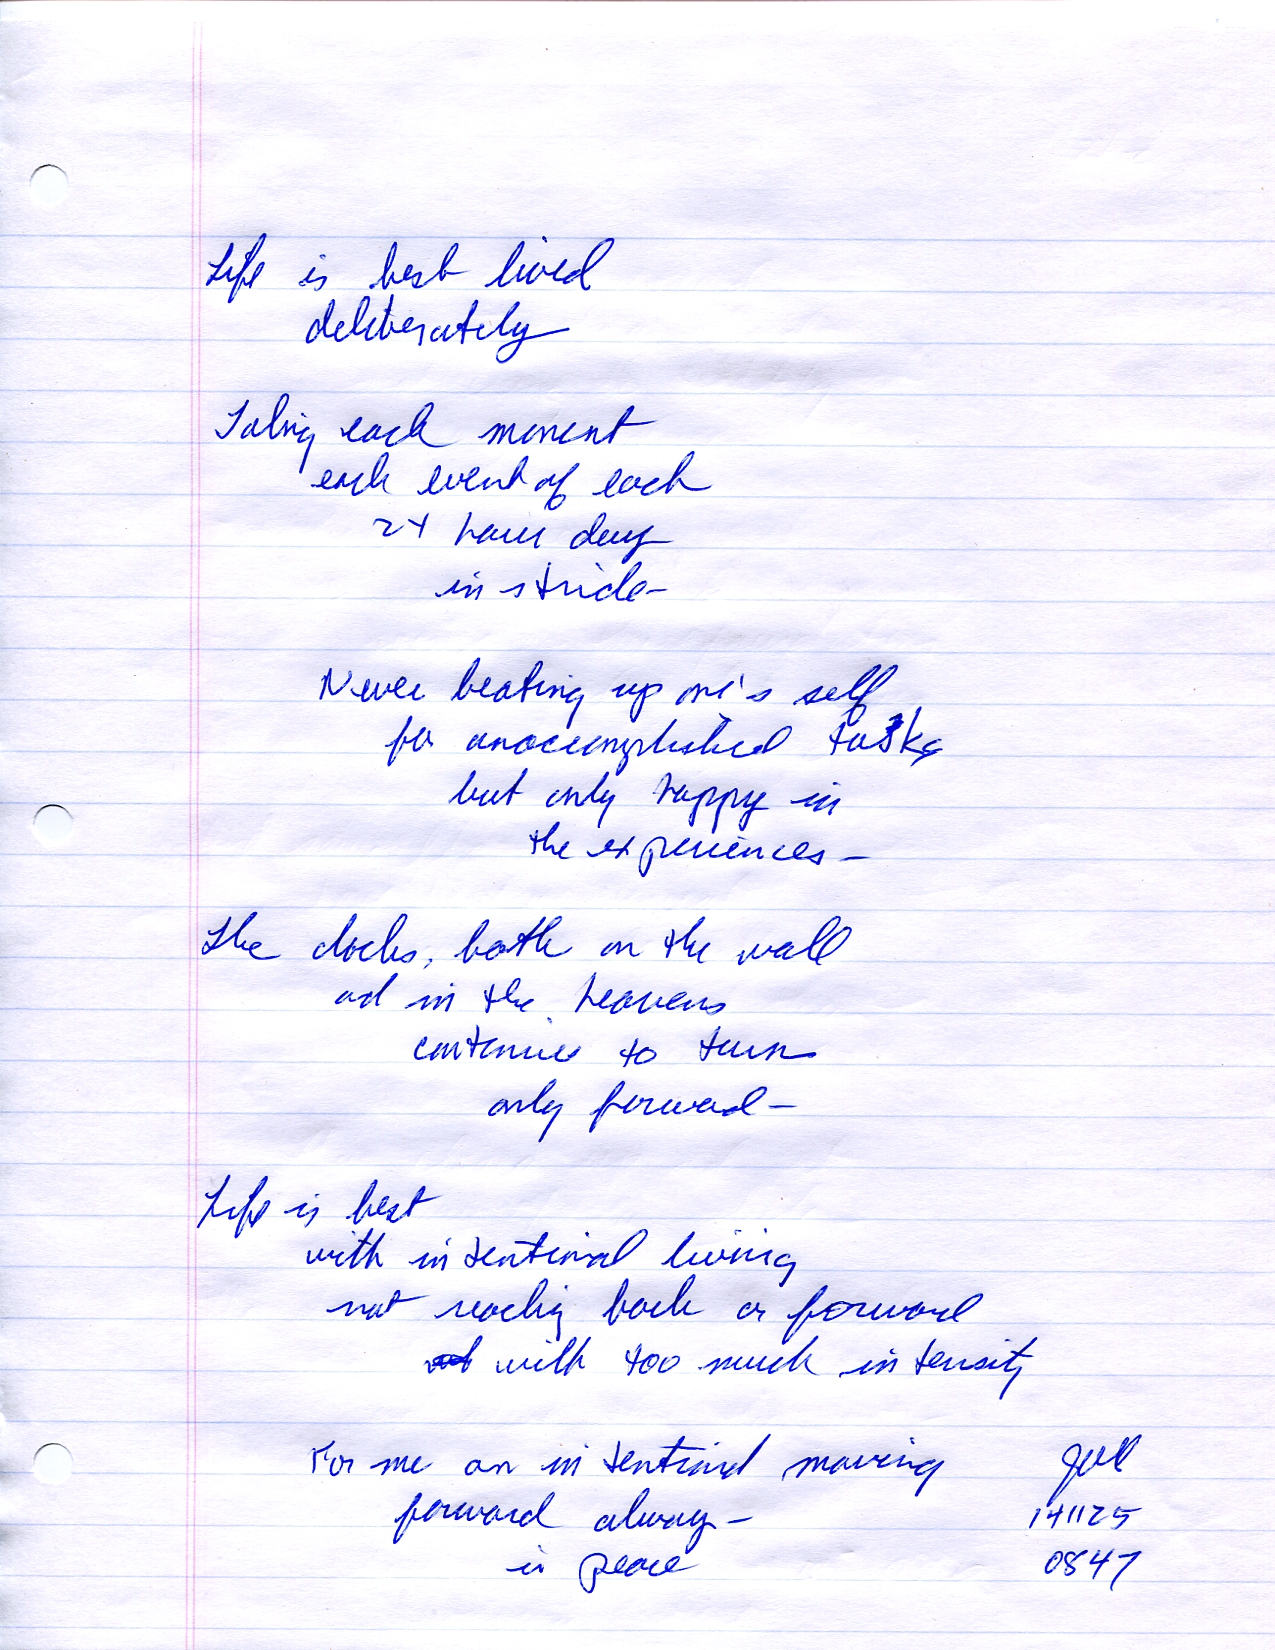 Life is best lived
deliberately
Taking each moment
each event of each
24 hour day
in stride-
Never beating up one's self
for unaccomplished tasks
but only happy in
the experiences-
The clocks, both on the wall
and in the heavens
continue to turn
only forward-
Life is best
with intentional living
not reaching back or forward
with too much intensity
For me an intentional moving
forward always-
in peace
141125
0847